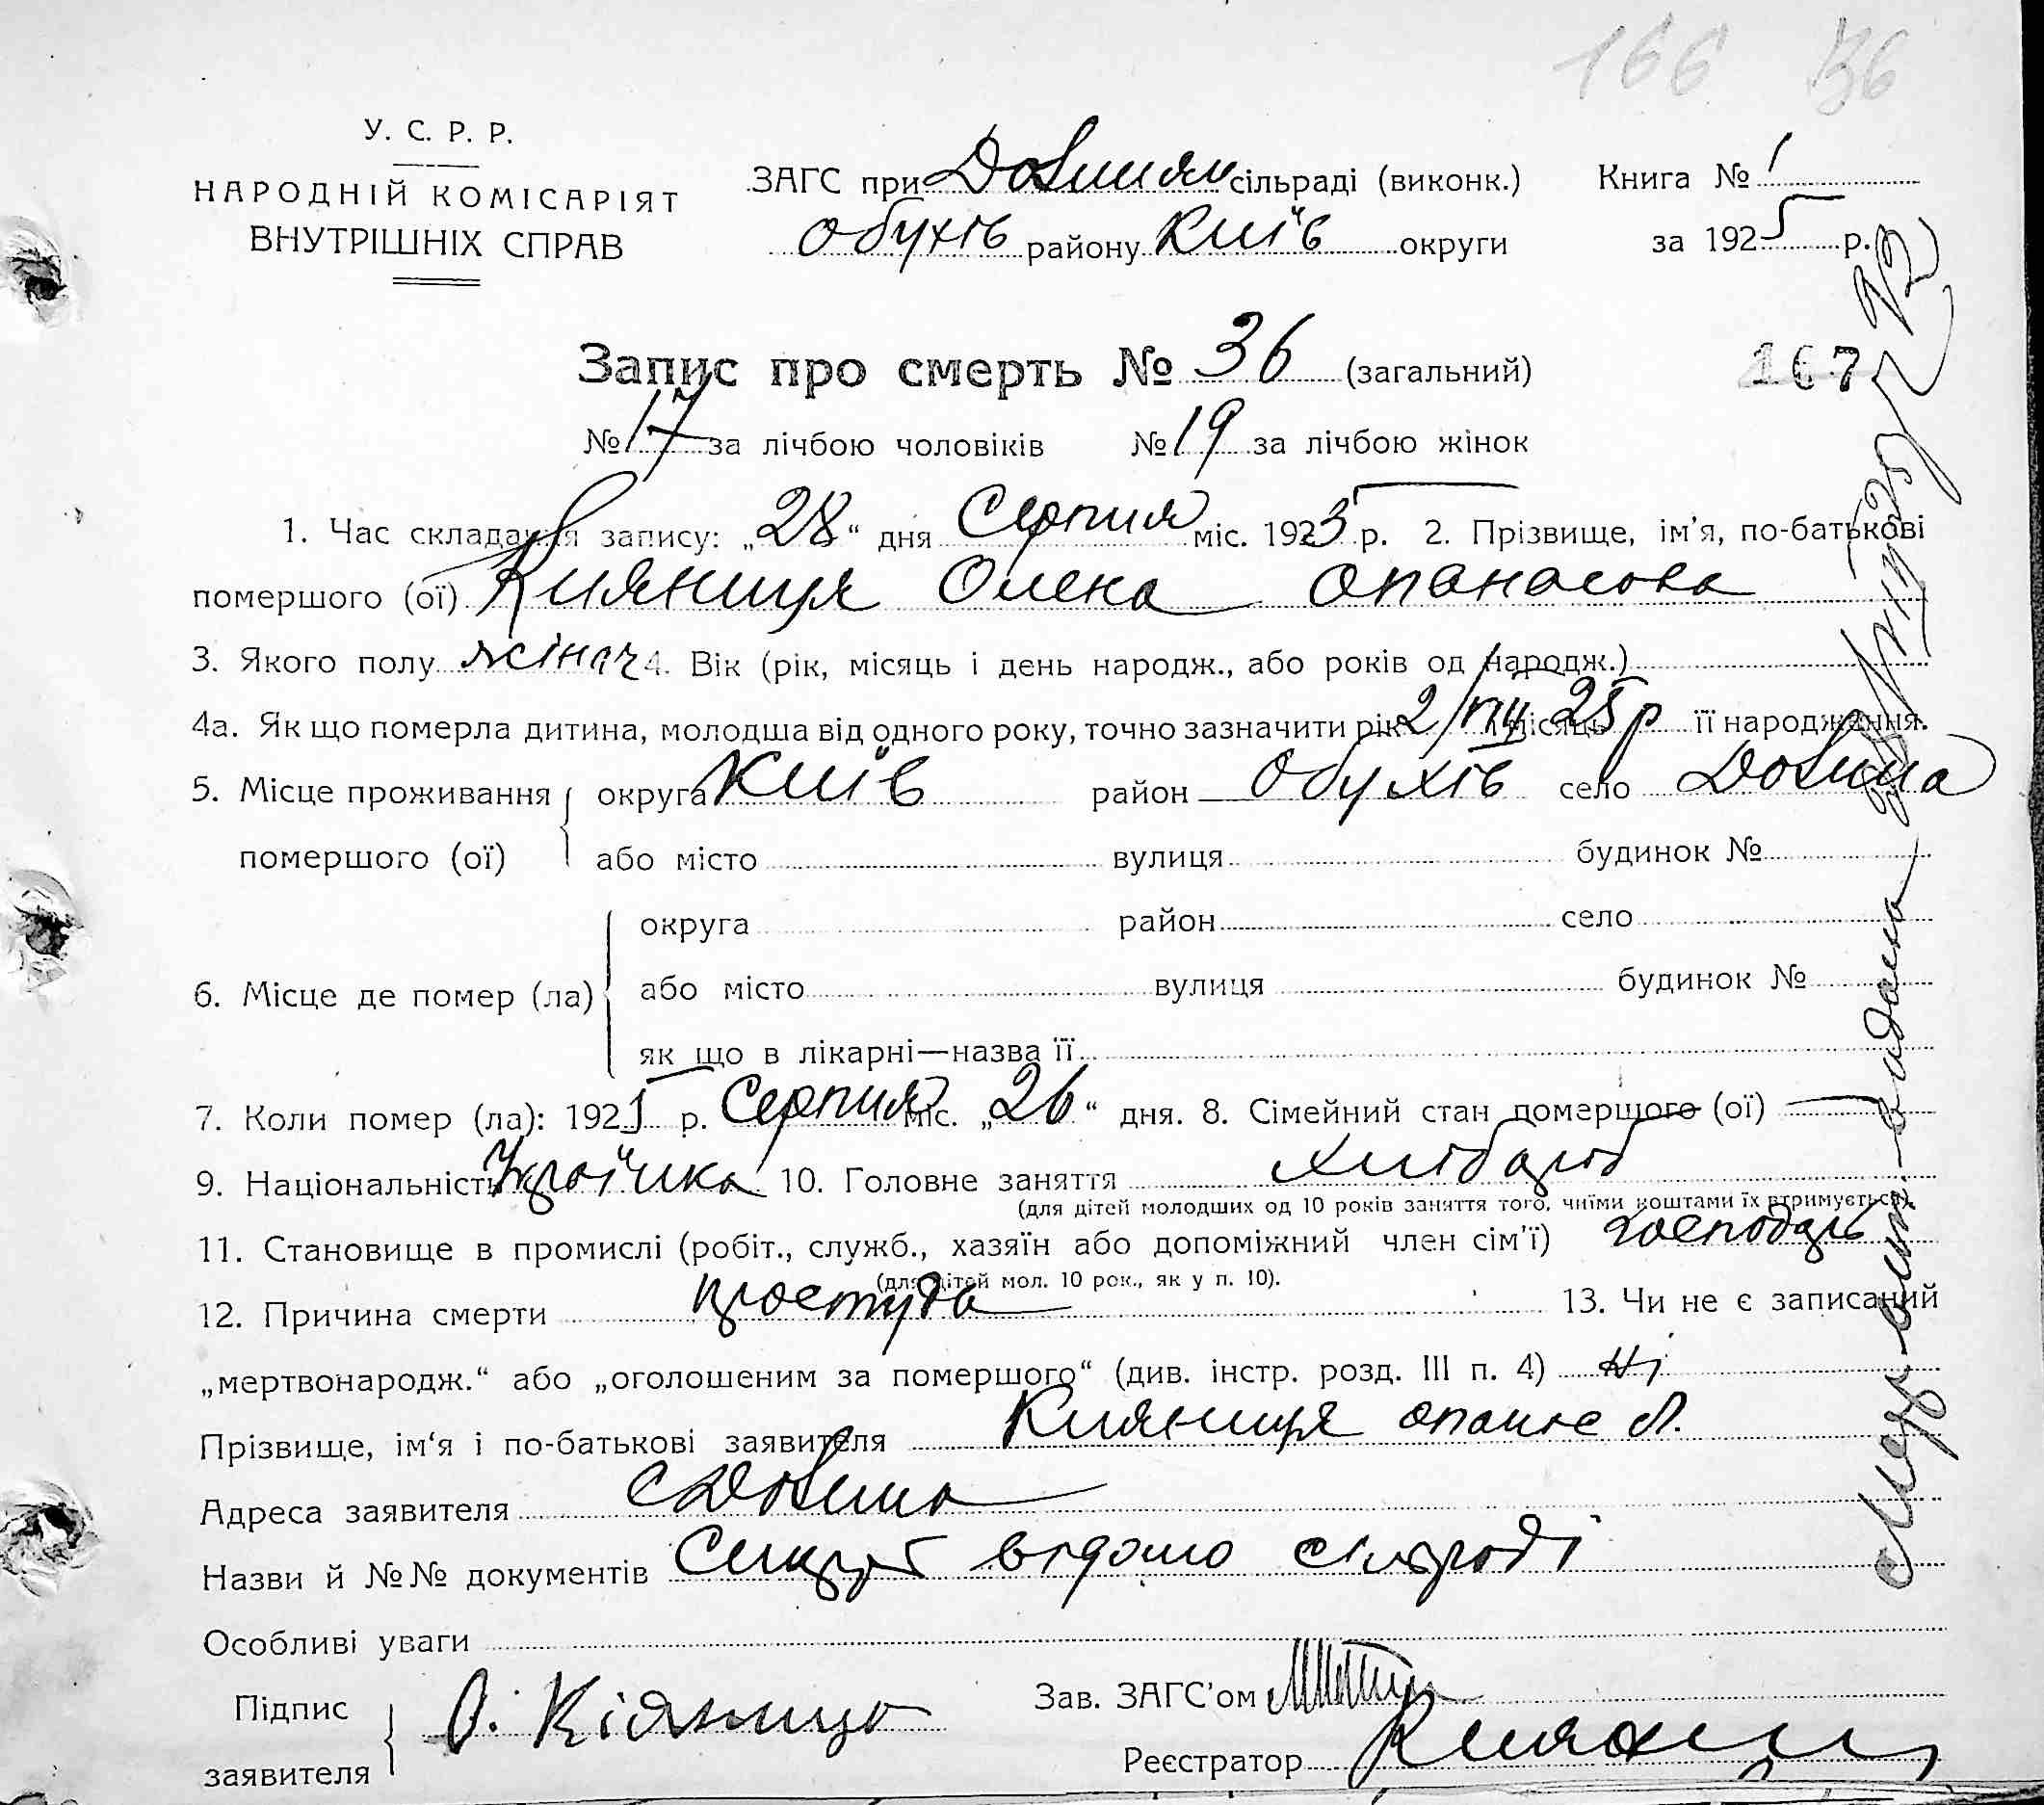 166 36
У. С. Р. Р.
НАРОДНІЙ КОМІСАРІЯТ
ВНУТРІШНІХ СПРАВ
ЗАГС при Довинян сільраді (виконк.) Книга № 1
Обухів району Київ округи за 1925 р.
Запис про смерть № 36 (загальний)
167
№ 17 за лічбою чоловіків № 19 за лічбою жінок
1. Час складання запису: „28“ дня Серпня міс. 1925 р. 2. Прізвище, ім'я, по-батькові
помершого (ої) Кияниця Олена Опанасова
3. Якого полу жіноч 4. Вік (рік, місяць і день народж., або років од народж.)
4а. Як що померла дитина, молодша від одного року, точно зазначити рік 2/ІІІ 25 р місяць її народження.
5. Місце проживання помершого (ої) округа Київ район Обухів село Довина
або місто вулиця будинок №
6. Місце де помер (ла) округа район село
або місто вулиця будинок №
як що в лікарні—назва її
7. Коли помер (ла): 1925 р. Серпня міс. „26“ дня. 8. Сімейний стан помершого (ої) —
9. Національність Українка 10. Головне заняття хлібороб
(для дітей молодших од 10 років заняття того, чиїми коштами їх втримується).
11. Становище в промислі (робіт., служб., хазяїн або допоміжний член сім'ї) господарь
(для дітей мол. 10 рок., як у п. 10).
12. Причина смерти простуда 13. Чи не є записаний
„мертвонародж.“ або „оголошеним за помершого“ (див. інстр. розд. III п. 4) Ні
Прізвище, ім'я і по-батькові заявителя Кияниця Опанас
Адреса заявителя с Довина
Назви й №№ документів Смерть відомо сільраді
Особливі уваги
Підпис заявителя О. Кіяница
Зав. ЗАГС'ом
Реєстратор